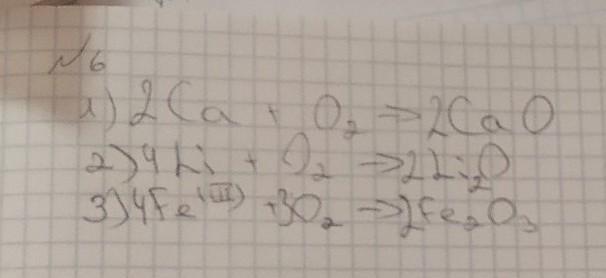 №6
1) 2Ca + O₂ → 2CaO
2) 4Li + O₂ → 2Li₂O
3) 4Fe(III) + 3O₂ → 2Fe₂O₃